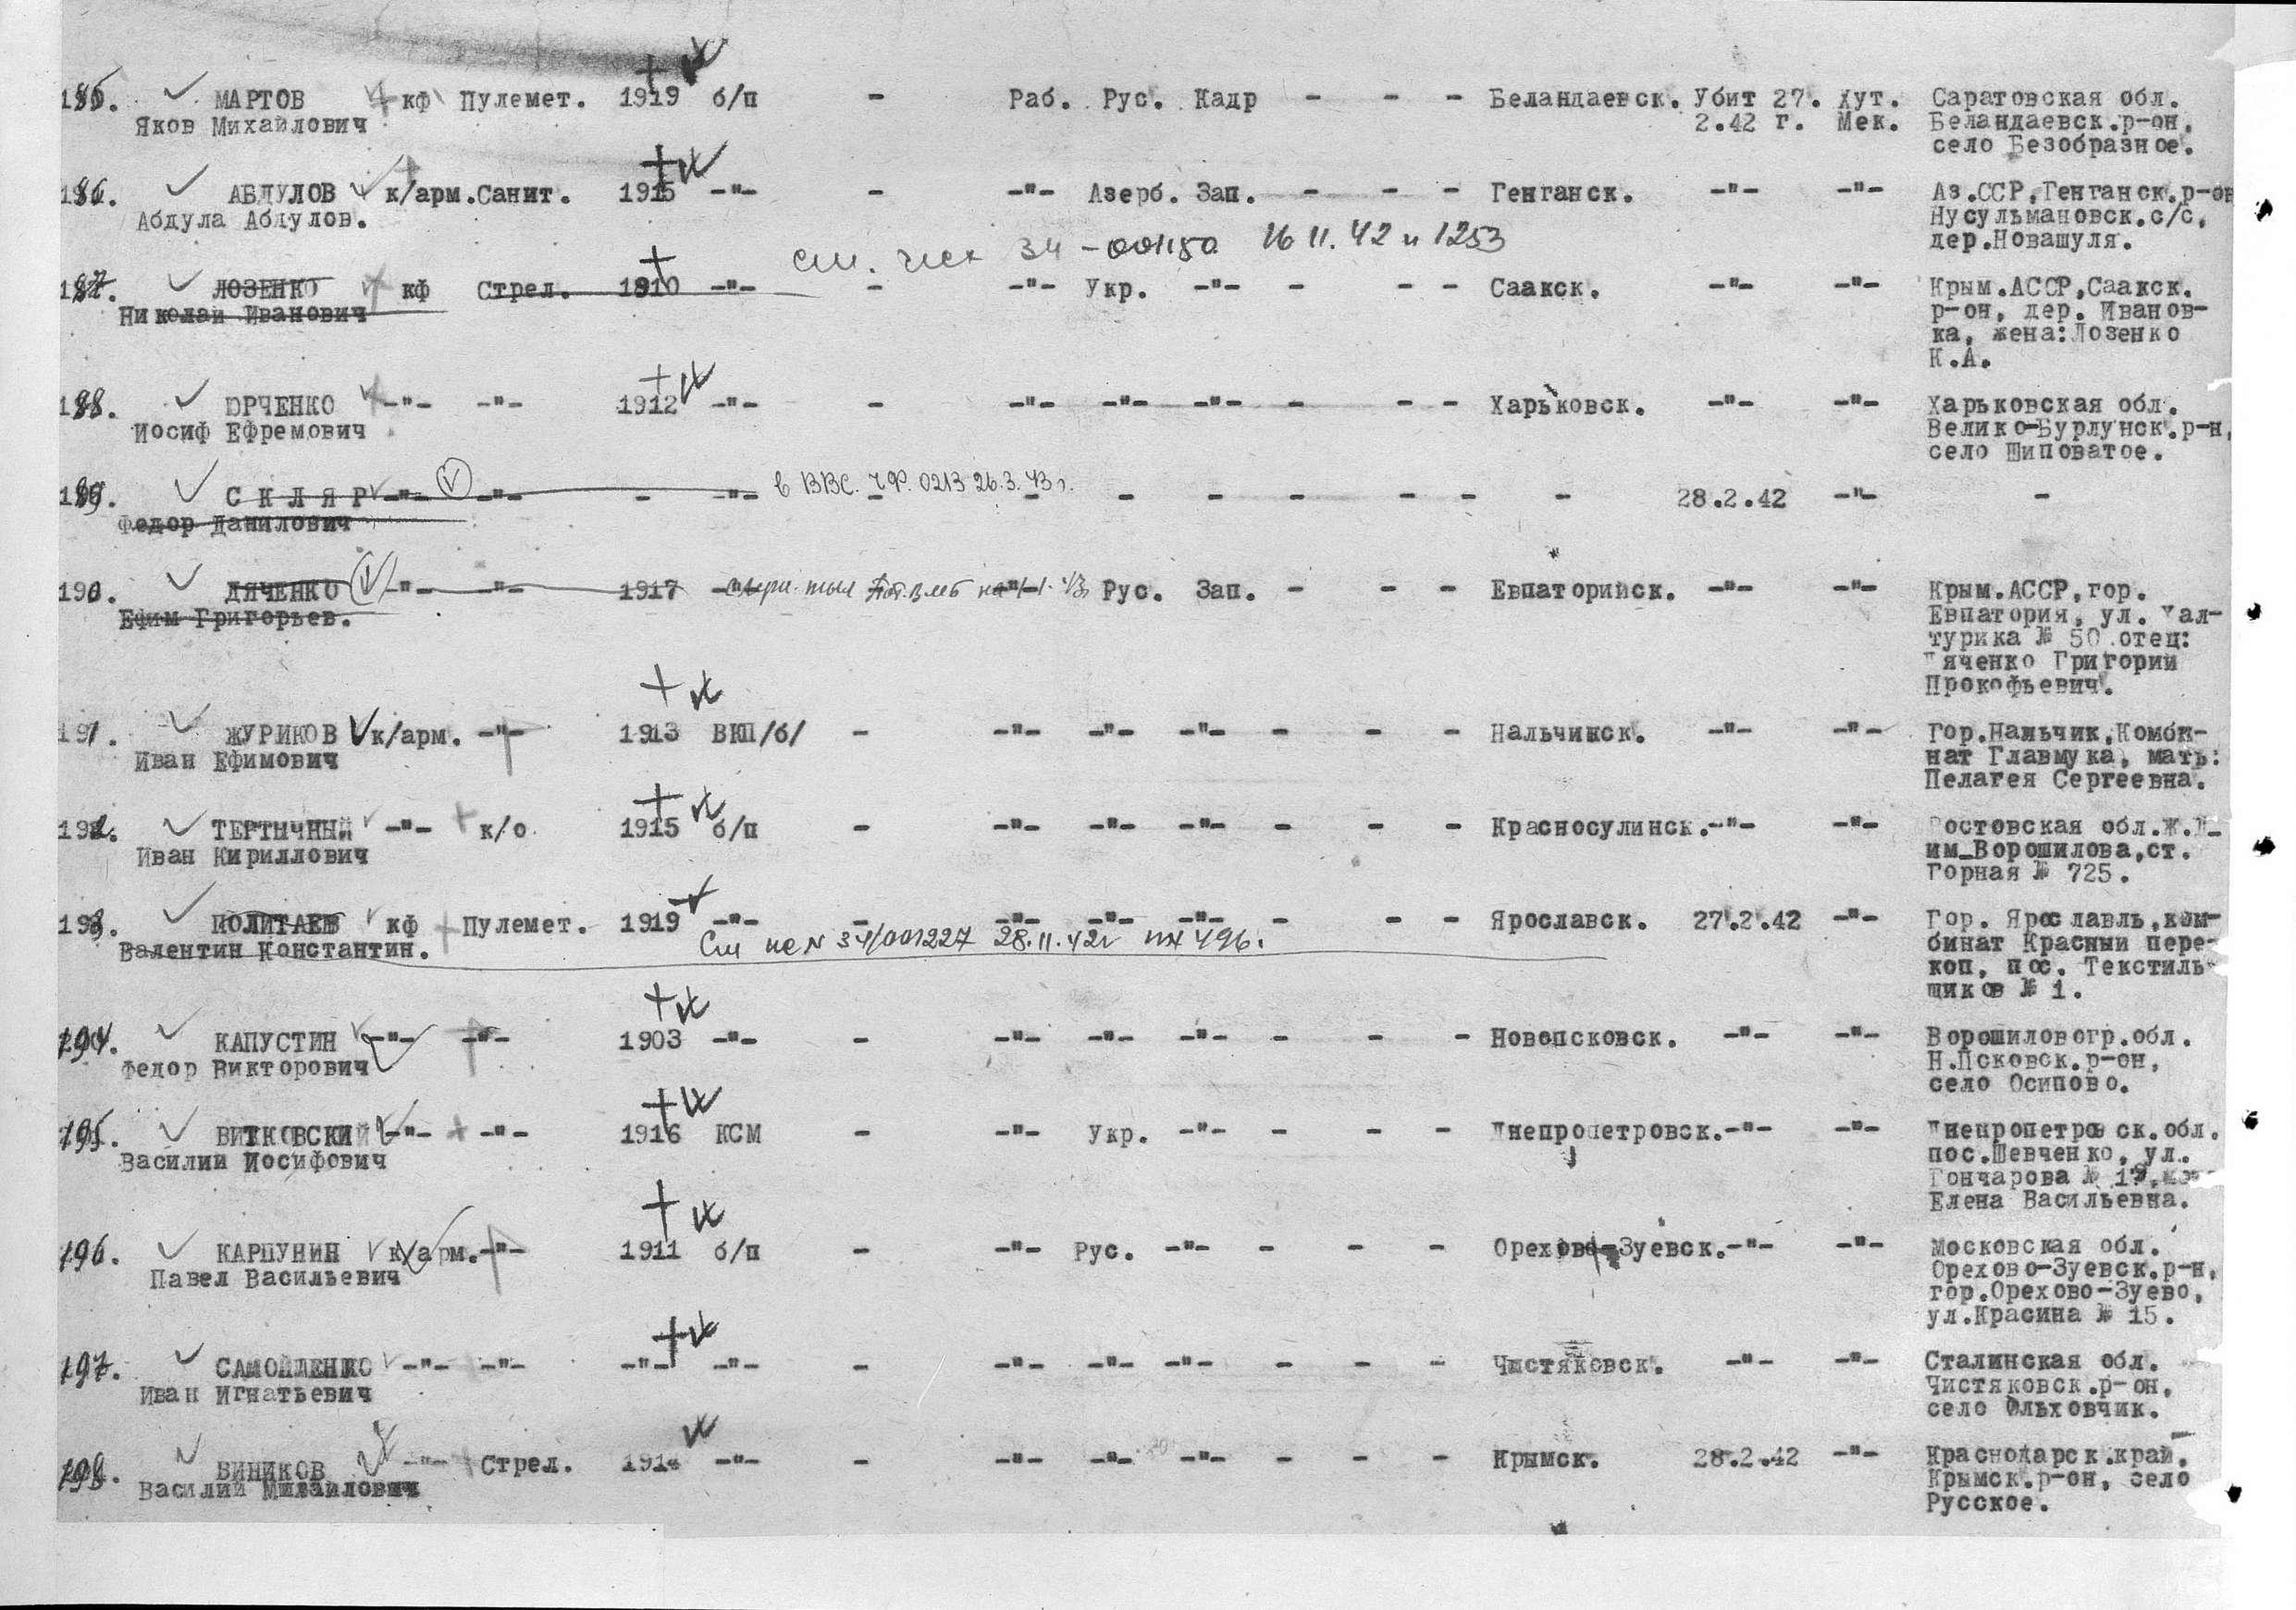 185. МАРТОВ кф Пулемет. 1919 б/п - Раб. Рус. Кадр - - - Беландаевск. Убит 27. Хут. Саратовская обл.
Яков Михайлович 2.42 г. Мек. Беландаевск.р-он,
село Безобразное.
186. АБДУЛОВ к/арм. Санит. 1915 -"- - -"- Азерб. Зап. - - - Генганск. -"- -"- Аз.ССР,Генганск.р-он
Абдула Абдулов. Нусульмановск.с/с,
дер.Новашуля.
16 11.42 и 1253
187. ЛОЗЕНКО кф Стрел. 1910 -"- - -"- Укр. -"- - - - Саакск. -"- -"- Крым.АССР,Саакск.
Николай Иванович р-он, дер. Иванов-
ка, жена:Лозенко
К.А.
188. ЮРЧЕНКО -"- -"- 1912 -"- - -"- -"- -"- - - - Харьковск. -"- -"- Харьковская обл.
Иосиф Ефремович Велико-Бурлунск.р-н,
село Шиповатое.
189. С К Л Я Р -"- -"- - -"- в ВВС. ЧФ. 0213 26.3.43г. - - - - - - - 28.2.42 -"- -
Федор Данилович
190. ДЯЧЕНКО -"- -"- 1917 -"- -"- Рус. Зап. - - - Евпаторийск. -"- -"- Крым.АССР,гор.
Ефим Григорьев. Евпатория, ул. Хал-
турика № 50 отец:
Дяченко Григорий
Прокофьевич.
191. ЖУРИКОВ к/арм. -"- 1913 ВКП/б/ - -"- -"- -"- - - - Нальчикск. -"- -"- Гор.Нальчик,Комби-
Иван Ефимович нат Главмука, мать:
Пелагея Сергеевна.
192. ТЕРТЫЧНЫЙ -"- к/о 1915 б/п - -"- -"- -"- - - - Красносулинск. -"- -"- Ростовская обл.Ж.Д-
Иван Кириллович им_Ворошилова,ст.
Горная № 725.
193. ПОЛИТАЕВ кф Пулемет. 1919 -"- - -"- -"- -"- - - - Ярославск. 27.2.42 -"- Гор. Ярославль,ком-
Валентин Константин. 34/001227 28.11.42г 496. бинат Красный пере-
коп, пос. Текстиль-
щиков № 1.
194. КАПУСТИН -"- -"- 1903 -"- - -"- -"- -"- - - - Новопсковск. -"- -"- Ворошиловогр.обл.
Федор Викторович Н.Псковск.р-он,
село Осипово.
195. ВИТКОВСКИЙ -"- -"- 1916 КСМ - -"- Укр. -"- - - - Днепропетровск. -"- -"- Днепропетровск.обл.
Василий Иосифович пос.Шевченко, ул.
Гончарова №
Елена Васильевна.
196. КАРПУНИН к/арм. -"- 1911 б/п - -"- Рус. -"- - - - Орехово-Зуевск. -"- -"- Московская обл.
Павел Васильевич Орехово-Зуевск.р-н,
гор.Орехово-Зуево,
ул.Красина № 15.
197. САМОЙЛЕНКО -"- -"- -"- -"- - -"- -"- -"- - - - Чистяковск. -"- -"- Сталинская обл.
Иван Игнатьевич Чистяковск.р-он,
село Ольховчик.
198. ВИНИКОВ -"- Стрел. 1914 -"- - -"- -"- -"- - - - Крымск. 28.2.42 -"- Краснодарск.край,
Василий Михайлович Крымск.р-он, село
Русское.